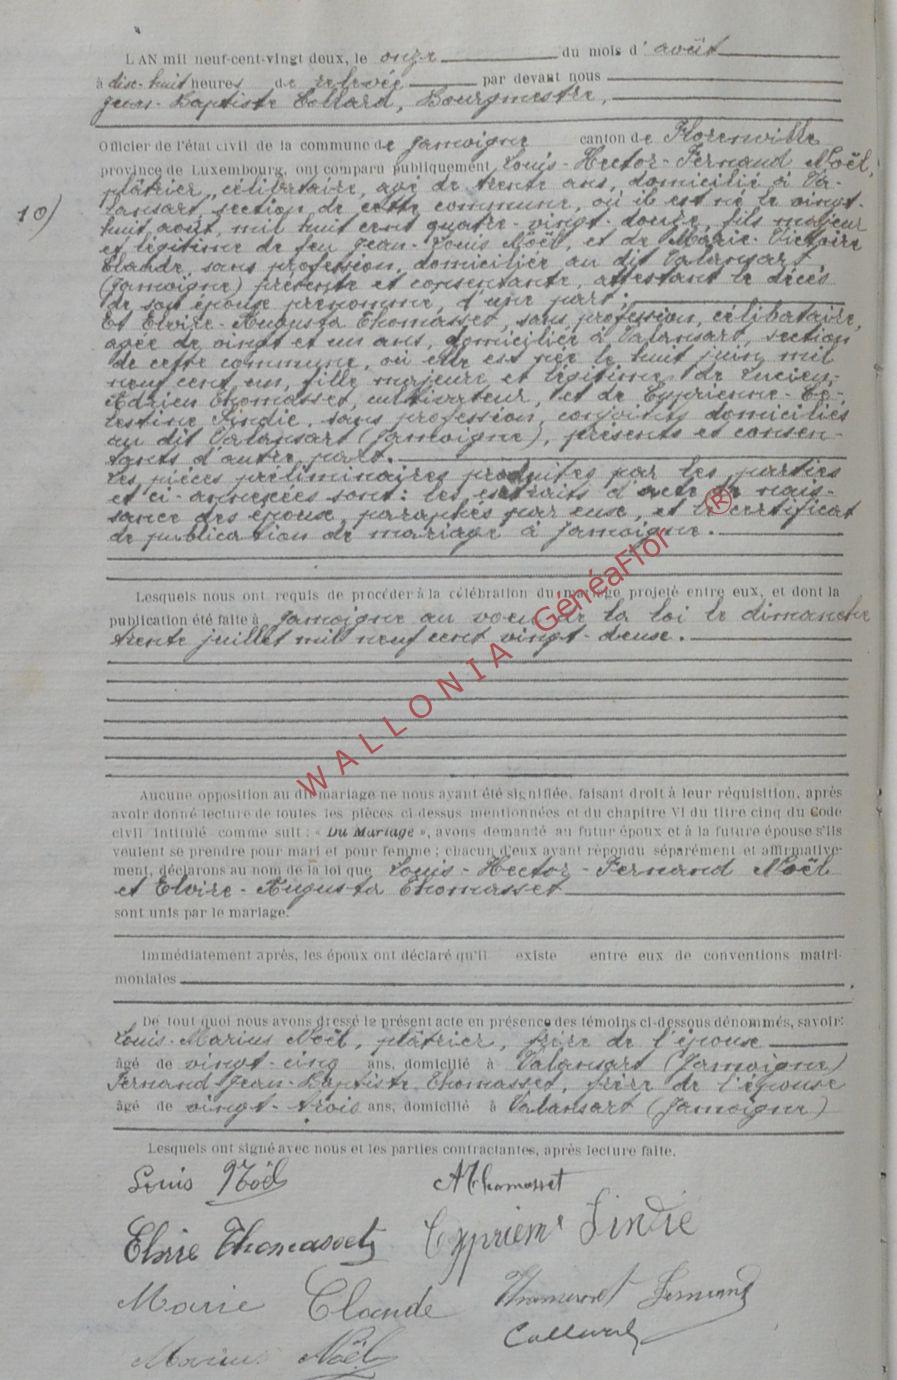 L'AN mil neuf-cent-vingt deux, le onze du mois d' août
à dix-huit heures de relevée par devant nous
Jean-Baptiste Collard, Bourgmestre,
Officier de l'état civil de la commune de Jamoigne canton de Florenville
province de Luxembourg, ont comparu publiquement Louis-Hector-Fernand Noël,
10)
plâtrier, célibataire, agé de trente ans, domicilié à Va-
lansart, section de cette commune, où il est né le vingt-
huit août, mil huit cent quatre-vingt-douze, fils majeur
et légitime de feu Jean-Louis Noël, et de Marie-Victoire
Claude, sans profession, domiciliée au dit Valansart
(Jamoigne) présente et consentante, attestant le décès
de son épouse prénommé, d'une part;
Et Elvire-Augusta Thomasset, sans profession, célibataire,
agée de vingt et un ans, domiciliée à Valansart, section
de cette commune, où elle est née le huit juin mil
neuf cent un, fille majeure et légitime de Lucien-
Adrien Thomasset, cultivateur, et de Cyprienne-Cé-
lestine Lindié, sans profession, conjoints domiciliés
au dit Valansart (Jamoigne), présents et consen-
tants d'autre part.
Les pièces préliminaires produites par les parties
et ci-annexées sont: les extraits d'acte de nais-
sance des époux, paraphés par eux, et le certificat
de publication de mariage à Jamoigne.
Lesquels nous ont requis de procéder à la célébration du mariage projeté entre eux, et dont la
publication été faite à Jamoigne au voeu de la loi le dimanche
trente juillet mil neuf cent vingt-deux.
WALLONIA GénéaFlor ®
Aucune opposition au dit mariage ne nous ayant été signifiée, faisant droit à leur réquisition, après
avoir donné lecture de toutes les pièces ci-dessus mentionnées et du chapitre VI du titre cinq du Code
civil intitulé comme suit : « Du Mariage », avons demandé au futur époux et à la future épouse s'ils
veulent se prendre pour mari et pour femme ; chacun d'eux ayant répondu séparément et affirmative-
ment, déclarons au nom de la loi que Louis-Hector-Fernand Noël
et Elvire-Augusta Thomasset
sont unis par le mariage.
Immédiatement après, les époux ont déclaré qu'il existe entre eux de conventions matri-
moniales
De tout quoi nous avons dressé le présent acte en présence des témoins ci-dessous dénommés, savoir:
Louis-Marius Noël, plâtrier, frère de l'épouse
âgé de vingt-cinq ans, domicilié à Valansart (Jamoigne)
Fernand Jean-Baptiste Thomasset, frère de l'épouse
âgé de vingt-trois ans, domicilié à Valansart (Jamoigne)
Lesquels ont signé avec nous et les parties contractantes, après lecture faite.
Louis Noël AThomasset
Elvire Thomasset Cyprienne Lindié
Marie Claude Thomasset Fernand
Collard
Marius Noël